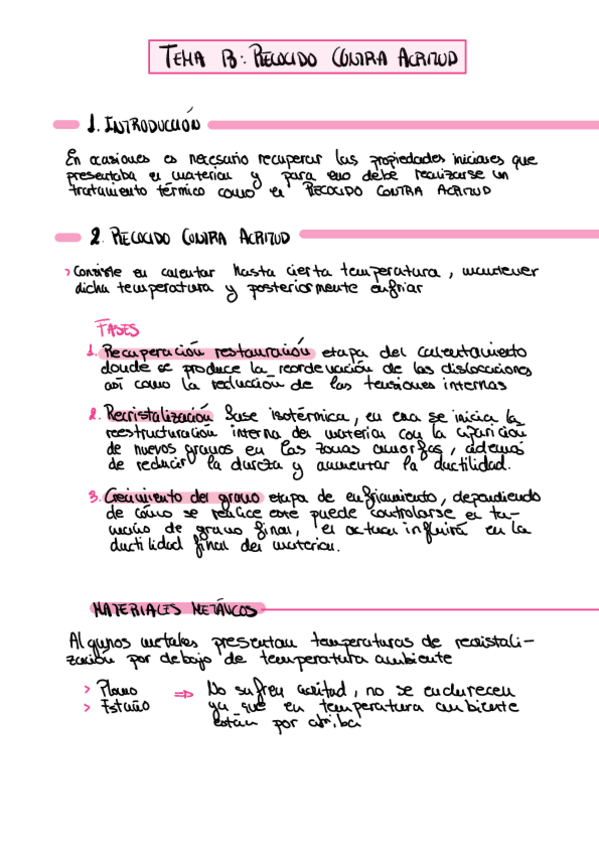 TEMA 13: RECOCIDO CONTRA ACRITUD
1. INTRODUCCIÓN
En ocasiones es necesario recuperar las propiedades iniciales que
presentaba el material y para ello debe realizarse un
tratamiento térmico como el RECOCIDO CONTRA ACRITUD
2. RECOCIDO CONTRA ACRITUD
> Consiste en calentar hasta cierta temperatura, mantener
dicha temperatura y posteriormente enfriar
FASES
1. Recuperación restauración etapa del calentamiento
donde se produce la reordenación de las dislocaciones
así como la reducción de las tensiones internas
2. Recristalización fase isotérmica, en ella se inicia la
reestructuración interna del material con la aparición
de nuevos granos en las zonas amorfas, además
de reducir la dureza y aumentar la ductilidad.
3. Crecimiento del grano etapa de enfriamiento, dependiendo
de cómo se realice este puede controlarse el ta-
maño de grano final, el actual influirá en la
ductilidad final del material.
MATERIALES METÁLICOS
Algunos metales presentan temperaturas de recristali-
zación por debajo de temperatura ambiente
> Plomo ⇒ No sufren acritud, no se endurecen
> Estaño ya que en temperatura ambiente
están por arriba